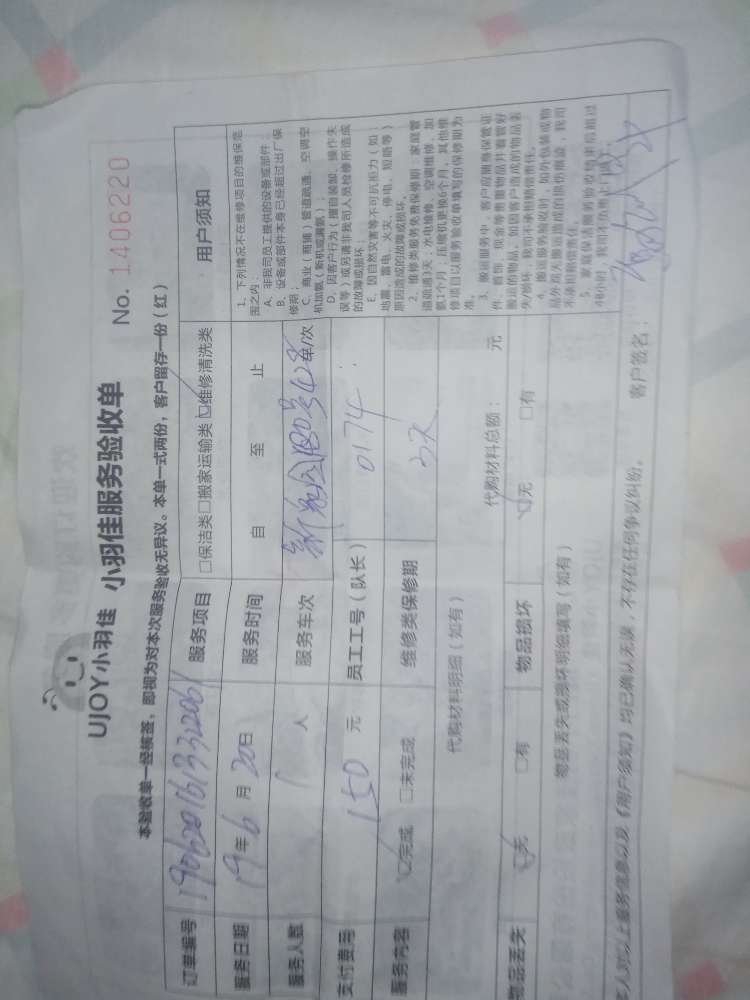 UJOY小羽佳 小羽佳服务验收单
No. 1406220
本验收单一经核签，即视为对本次服务验收无异议。本单一式两份，客户留存一份（红）
订单编号
服务项目 □保洁类□搬家运输类☑维修清洗类
服务日期 19年6月20日
服务时间 自 至 止
服务人数 1 人
服务车次 单/次
支付费用 150 元
员工工号（队长） 0174
服务内容 ☑完成 □未完成
维修类保修期 3天
代购材料明细（如有）
代购材料总额： 元
物品丢失 ☑无 □有
物品损坏 ☑无 □有
物品丢失或损坏明细填写（如有）
用户须知
1、下列情况不在维修项目的维保范
围之内：
A、非我司员工提供的设备或部件；
B、设备或部件本身已经超过出厂保
修期；
C、商业（商铺）管道疏通、空调空
机加氨（新机或漏氨）；
D、因客户行为（擅自装卸、操作失
误等）或另请非我司人员检修所造成
的故障或损坏；
E、因自然灾害等不可抗拒力（如：
地震、雷电、火灾、停电、短路等）
原因造成的故障或损坏。
2、维修类服务免费保修期：家庭管
道疏通3天；水电维修、空调维修、加
氨1个月；压缩机更换6个月，其他维
修项目以服务验收单填写的保修期为
准。
3、搬运服务中，客户应随身保管证
件、首饰、现金等贵重物品并看管好
搬运的物品，如因客户造成的物品丢
失/损坏，我司不承担赔偿责任。
4、搬运服务验收时，如仍包装或物
品外观无人搬运造成的损伤痕迹，我司
不承担赔偿责任。
5、家庭保洁服务验收结束后超过
48小时，我司不负责上门
人对以上服务信息以及《用户须知》均已确认无误，不存在任何争议纠纷。 客户签名：